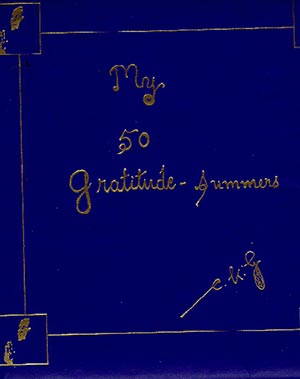 My
50
Gratitude - Summers
C.K.G